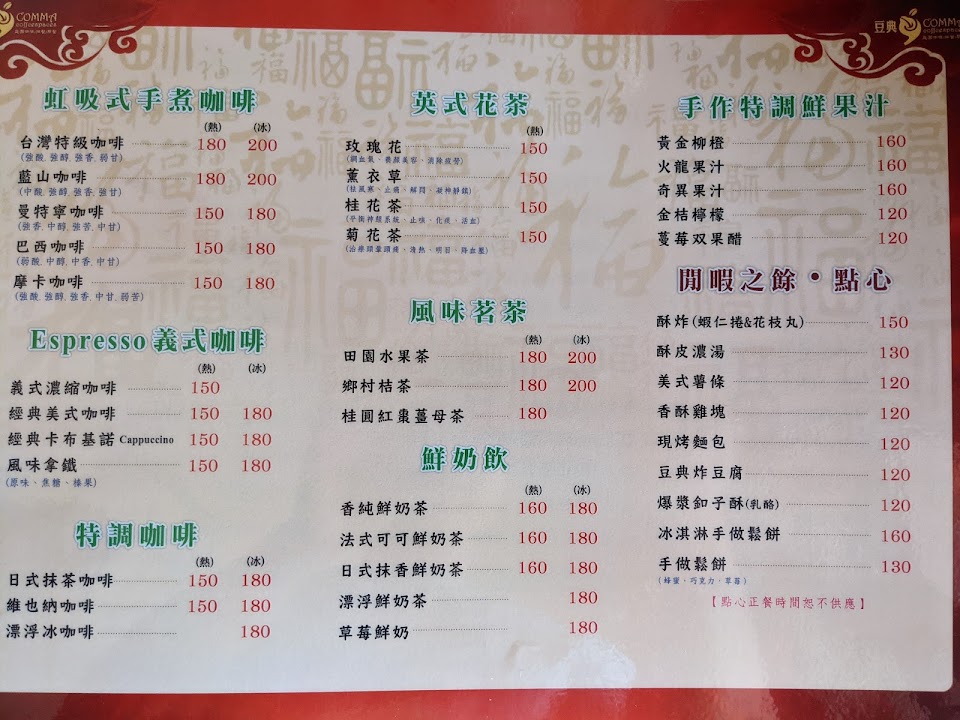 COMMA
coffeespaces
豆典
COMMA
coffeespaces
虹吸式手煮咖啡
(熱) (冰)
台灣特級咖啡 180 200
(強酸, 強醇, 強香, 弱甘)
藍山咖啡 180 200
(中酸, 強醇, 強香, 強甘)
曼特寧咖啡 150 180
(強香, 中醇, 強苦, 中甘)
巴西咖啡 150 180
(弱酸, 中醇, 中香, 中甘)
摩卡咖啡 150 180
(強酸, 強醇, 強香, 中甘, 弱苦)
Espresso 義式咖啡
(熱) (冰)
義式濃縮咖啡 150
經典美式咖啡 150 180
經典卡布基諾 Cappuccino 150 180
風味拿鐵 150 180
(原味、焦糖、榛果)
特調咖啡
(熱) (冰)
日式抹茶咖啡 150 180
維也納咖啡 150 180
漂浮冰咖啡 180
英式花茶
(熱)
玫瑰花 150
(調血氣、養顏美容、消除疲勞)
薰衣草 150
(祛風寒、止痛、解悶、凝神靜鎮)
桂花茶 150
(平衡神經系統、止咳、化痰、活血)
菊花茶 150
(治療頭暈頭痛、清熱、明目、降血壓)
風味茗茶
(熱) (冰)
田園水果茶 180 200
鄉村桔茶 180 200
桂圓紅棗薑母茶 180
鮮奶飲
(熱) (冰)
香純鮮奶茶 160 180
法式可可鮮奶茶 160 180
日式抹香鮮奶茶 160 180
漂浮鮮奶茶 180
草莓鮮奶 180
手作特調鮮果汁
黃金柳橙 160
火龍果汁 160
奇異果汁 160
金桔檸檬 120
蔓莓双果醋 120
閒暇之餘・點心
酥炸(蝦仁捲&花枝丸) 150
酥皮濃湯 130
美式薯條 120
香酥雞塊 120
現烤麵包 120
豆典炸豆腐 120
爆漿釦子酥(乳酪) 120
冰淇淋手做鬆餅 160
手做鬆餅 130
(蜂蜜、巧克力、草莓)
【點心正餐時間恕不供應】